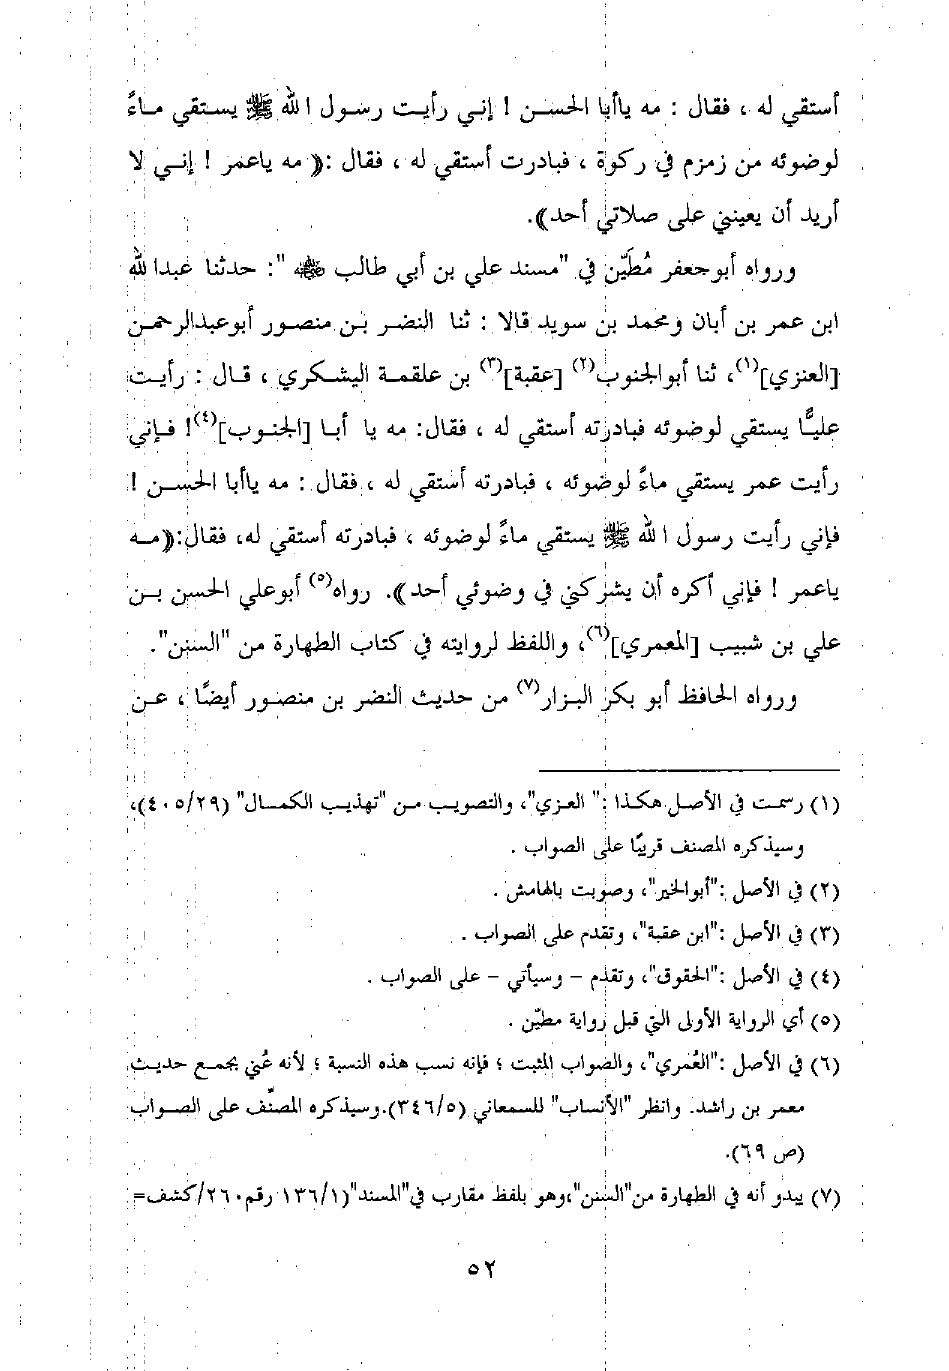 أستقي له ، فقال : مه ياأبا الحسن ! إني رأيت رسول الله ﷺ يستقي ماءً
لوضوئه من زمزم في ركوة ، فبادرت أستقي له ، فقال :﴿ مه ياعمر ! إني لا
أريد أن يعينني على صلاتي أحد﴾.
ورواه أبوجعفر مُطَيّن في "مسند علي بن أبي طالب ﷺ": حدثنا عبدالله
ابن عمر بن أبان ومحمد بن سويد قالا : ثنا النضر بن منصور أبوعبدالرحمن
[العنزي](١)، ثنا أبوالجنوب(٢) [عقبة](٣) بن علقمة اليشكري ، قال : رأيت
عليًّا يستقي لوضوئه فبادرته أستقي له ، فقال: مه يا أبا [الجنوب](٤)! فإني
رأيت عمر يستقي ماءً لوضوئه ، فبادرته أستقي له ، فقال : مه ياأبا الحسن !
فإني رأيت رسول الله ﷺ يستقي ماءً لوضوئه ، فبادرته أستقي له، فقال:﴿مه
ياعمر ! فإني أكره أن يشركني في وضوئي أحد﴾. رواه(٥) أبوعلي الحسن بن
علي بن شبيب [المعمري](٦)، واللفظ لروايته في كتاب الطهارة من "السنن".
ورواه الحافظ أبو بكر البزار(٧) من حديث النضر بن منصور أيضًا ، عن
(١) رسمت في الأصل هكذا :" العزي"، والتصويب من "تهذيب الكمال" (٤٠٥/٢٩)،
وسيذكره المصنف قريبًا على الصواب .
(٢) في الأصل :"أبوالخير"، وصوبت بالهامش .
(٣) في الأصل :"ابن عقبة"، وتقدم على الصواب .
(٤) في الأصل :"الحقوق"، وتقدم – وسيأتي – على الصواب .
(٥) أي الرواية الأولى التي قبل رواية مطيّن .
(٦) في الأصل :"العُمري"، والصواب المثبت ؛ فإنه نسب هذه النسبة ؛ لأنه عُني بجمع حديث
معمر بن راشد. وانظر "الأنساب" للسمعاني (٣٤٦/٥).وسيذكره المصنّف على الصواب
(ص ٦٩).
(٧) يبدو أنه في الطهارة من"السنن"،وهو بلفظ مقارب في"المسند"(١٣٦/١ رقم٢٦٠/كشف=
٥٢